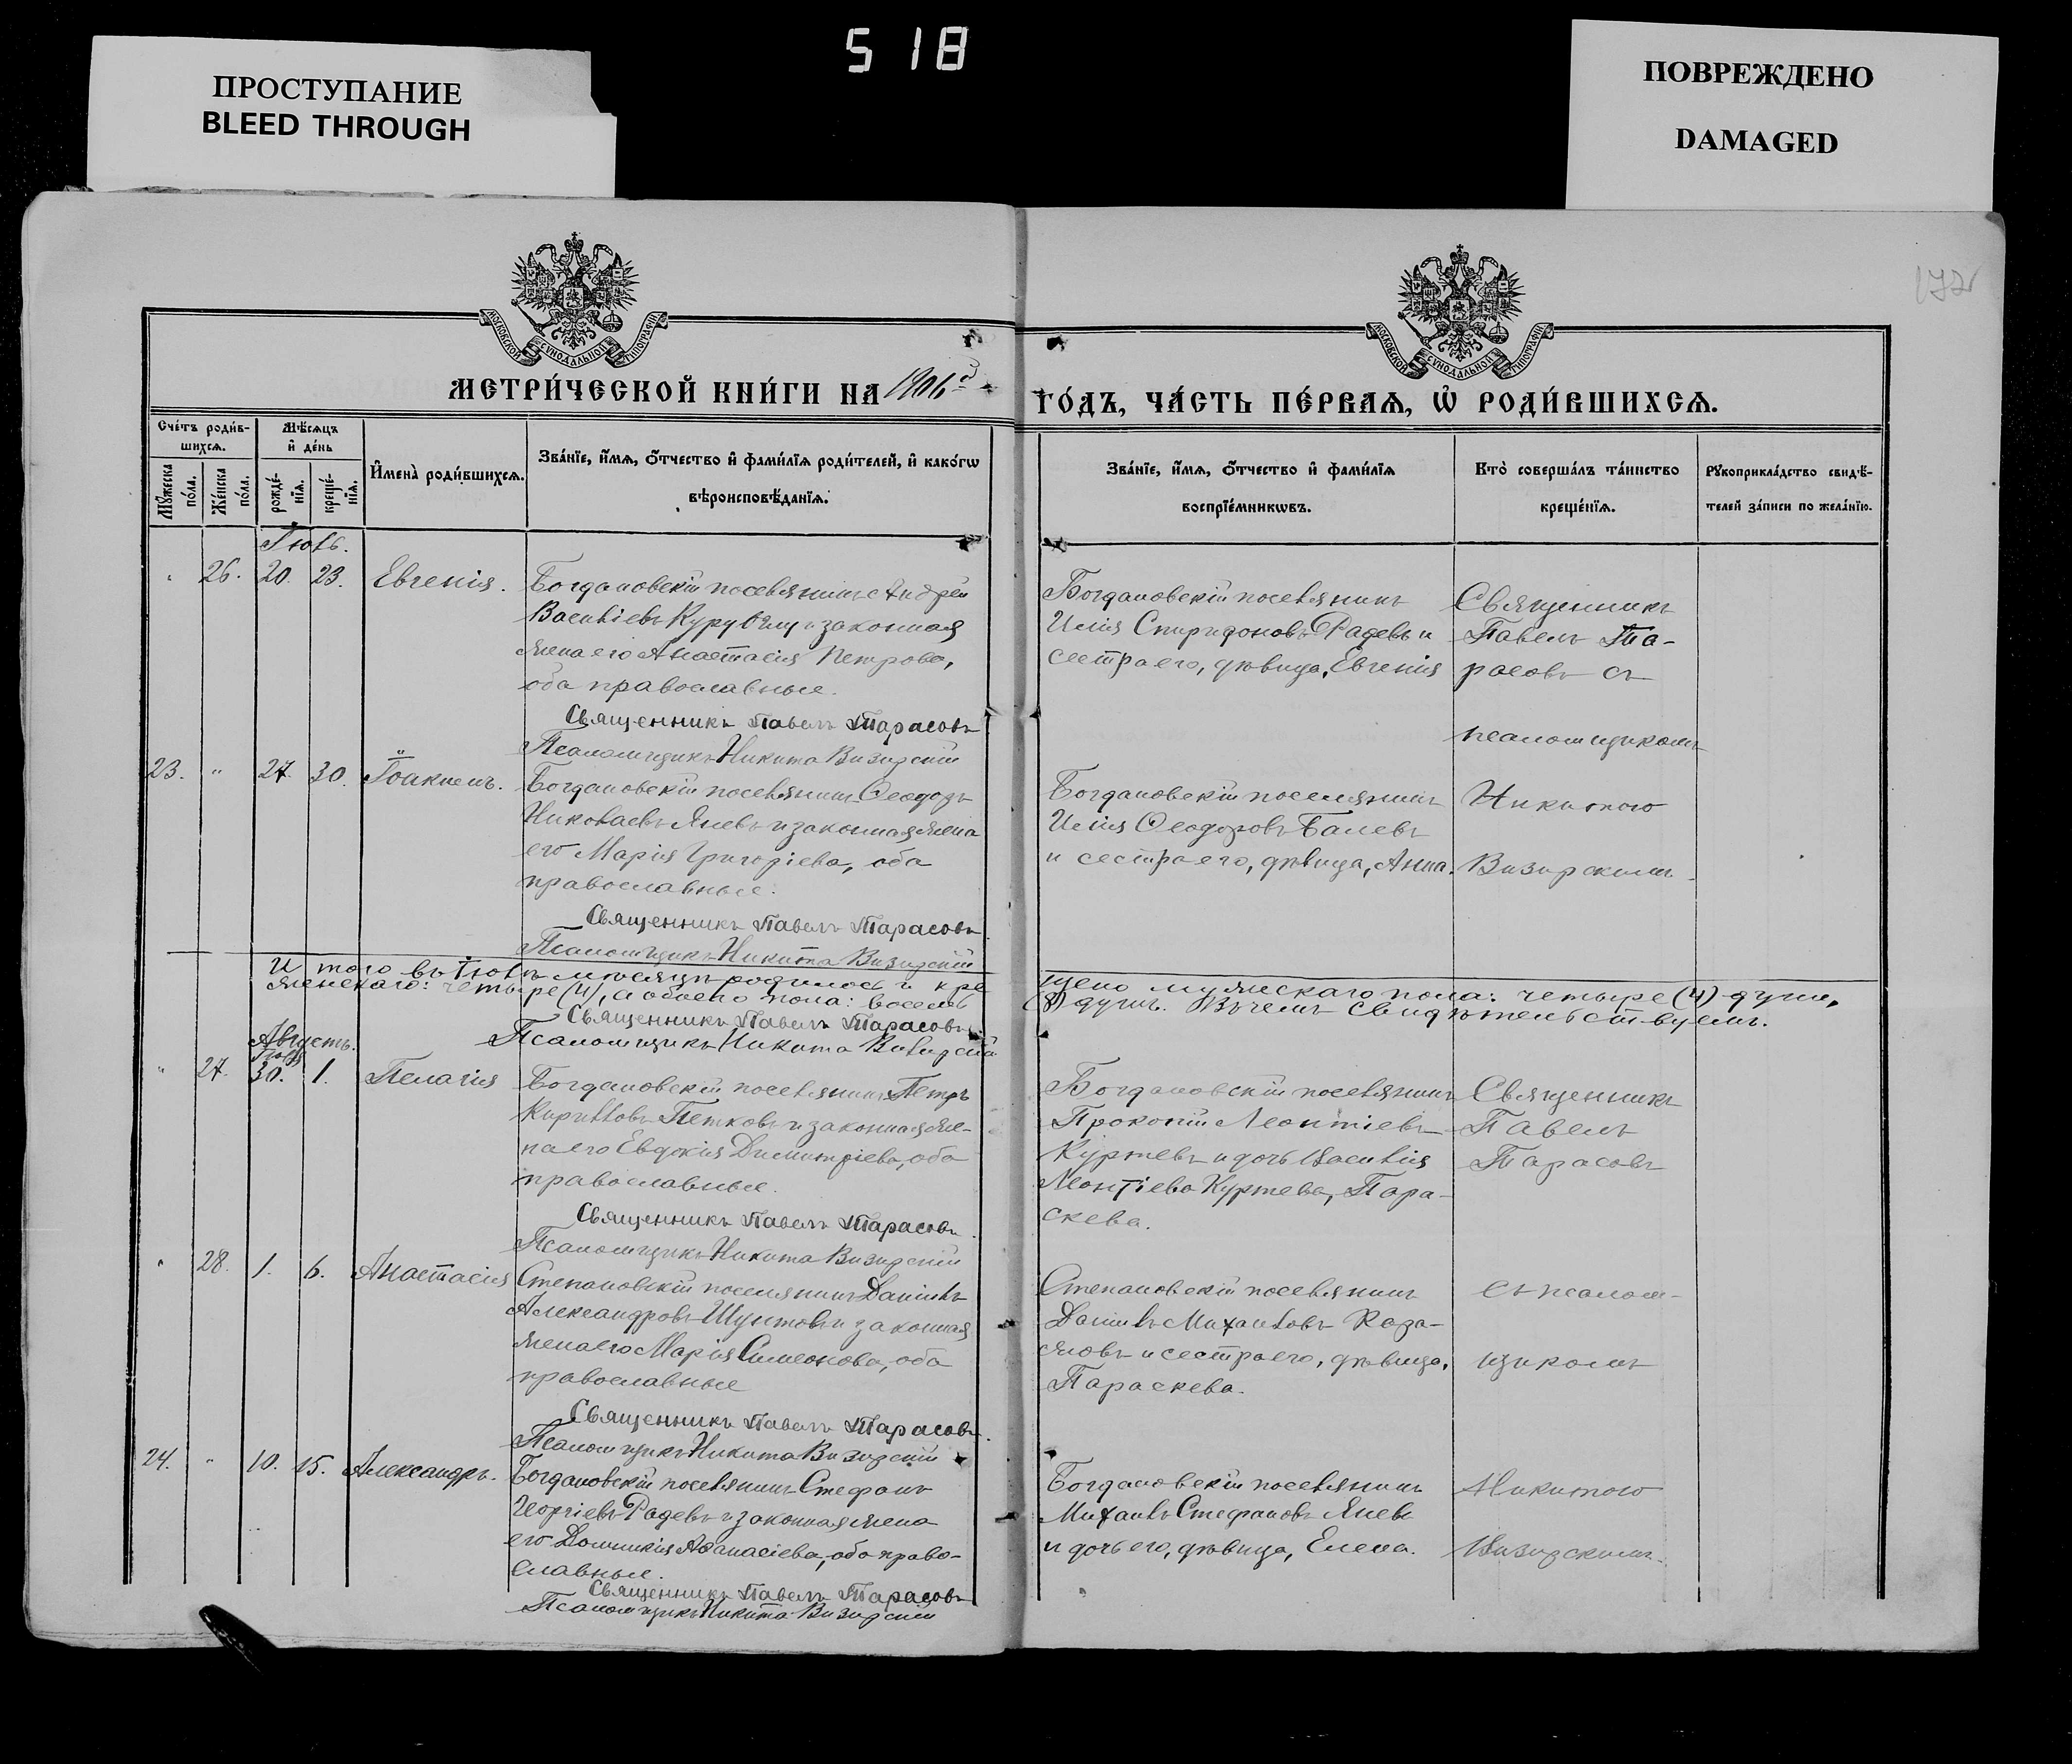 518
ПРОСТУПАНИЕ
BLEED THROUGH
ПОВРЕЖДЕНО
DAMAGED
172
МОСКОВСКОЙ СѴНОДАЛЬНОЙ ТИПОГРАФІИ
МОСКОВСКОЙ СѴНОДАЛЬНОЙ ТИПОГРАФІИ
МЕТРИ́ЧЕСКОЙ КНИ́ГИ НА 1906й
ГО́ДЪ, ЧА́СТЬ ПЕ́РВАѦ, Ѡ҆ РОДИ́ВШИХСѦ.
Сче́тъ роди́в-
шихсѧ.
Мꙋ́жеска по́ла.
Же́нска по́ла.
Мѣ́сѧцъ
и҆ де́нь
рожде́-
нїѧ.
креще́-
нїѧ.
И҆мена̀ роди́вшихсѧ.
Зва́нїе, и҆́мѧ, ѻ҆́тчество и҆ фами́лїѧ роди́телей, и҆ како́гѡ
вѣроисповѣ́данїѧ.
Зва́нїе, и҆́мѧ, ѻ҆́тчество и҆ фами́лїѧ
воспрїе́мникѡвъ.
Кто̀ соверша́лъ та́инство
креще́нїѧ.
Рꙋкоприкла́дство свидѣ́-
телей за́писи по жела́нїю.
Іюль.
" 26. 20. 23. Евгенія.
Богдановскій поселянинъ Андрей
Васильевъ Курудиму и законная
жена его Анастасія Петрова,
оба православные.
Священникъ Павелъ Тарасовъ
Псаломщикъ Никита Визирскій
Богдановскій поселянинъ
Илія Спиридоновъ Радевъ и
сестра его, дѣвица, Евгенія
Священникъ
Павелъ Та-
расовъ съ
псаломщикомъ
23. " 27. 30. Іоакимъ.
Богдановскій поселянинъ Ѳеодоръ
Николаевъ Яневъ и законная жена
его Марія Григоріева, оба
православные.
Священникъ Павелъ Тарасовъ
Псаломщикъ Никита Визирскій
Богдановскій поселянинъ
Илія Ѳеодоровъ Баневъ
и сестра его, дѣвица, Анна.
Никитою
Визирскимъ.
И того въ Іюлѣ мѣсяцѣ родилось и кре
щено мужскаго пола: четыре (4) души,
женскаго: четыре (4), а обоего пола: восемь
(8) душъ. Въ чемъ свидѣтельствуемъ.
Священникъ Павелъ Тарасовъ
Псаломщикъ Никита Визирскій
Августъ.
Іюль
" 27. 30. 1. Пелагія
Богдановскій поселянинъ Петръ
Кирилловъ Петковъ и законная же-
на его Евдокія Димитріева, оба
православные.
Священникъ Павелъ Тарасовъ.
Псаломщикъ Никита Визирскій
Богдановскій поселянинъ
Прокопій Леонтіевъ
Куртевъ и дочь Василія
Леонтіева Куртева, Пара-
скева.
Священникъ
Павелъ
Тарасовъ
" 28. 1. 6. Анастасія
Степановскій поселянинъ Даніилъ
Александровъ Шунтовъ и законная
жена его Марія Симеонова, оба
православные
Священникъ Павелъ Тарасовъ.
Псаломщикъ Никита Визирскій
Степановскій поселянинъ
Даніилъ Михаиловъ Каза-
яновъ и сестра его, дѣвица,
Параскева.
съ псалом-
щикомъ
24. " 10. 15. Александръ.
Богдановскій поселянинъ Стефанъ
Георгіевъ Радевъ и законная жена
его Домникія Аѳанасіева, оба право-
славные.
Священникъ Павелъ Тарасовъ
Псаломщикъ Никита Визирскій
Богдановскій поселянинъ
Михаилъ Стефановъ Яневъ
и дочь его, дѣвица, Елена.
Никитою
Визирскимъ.